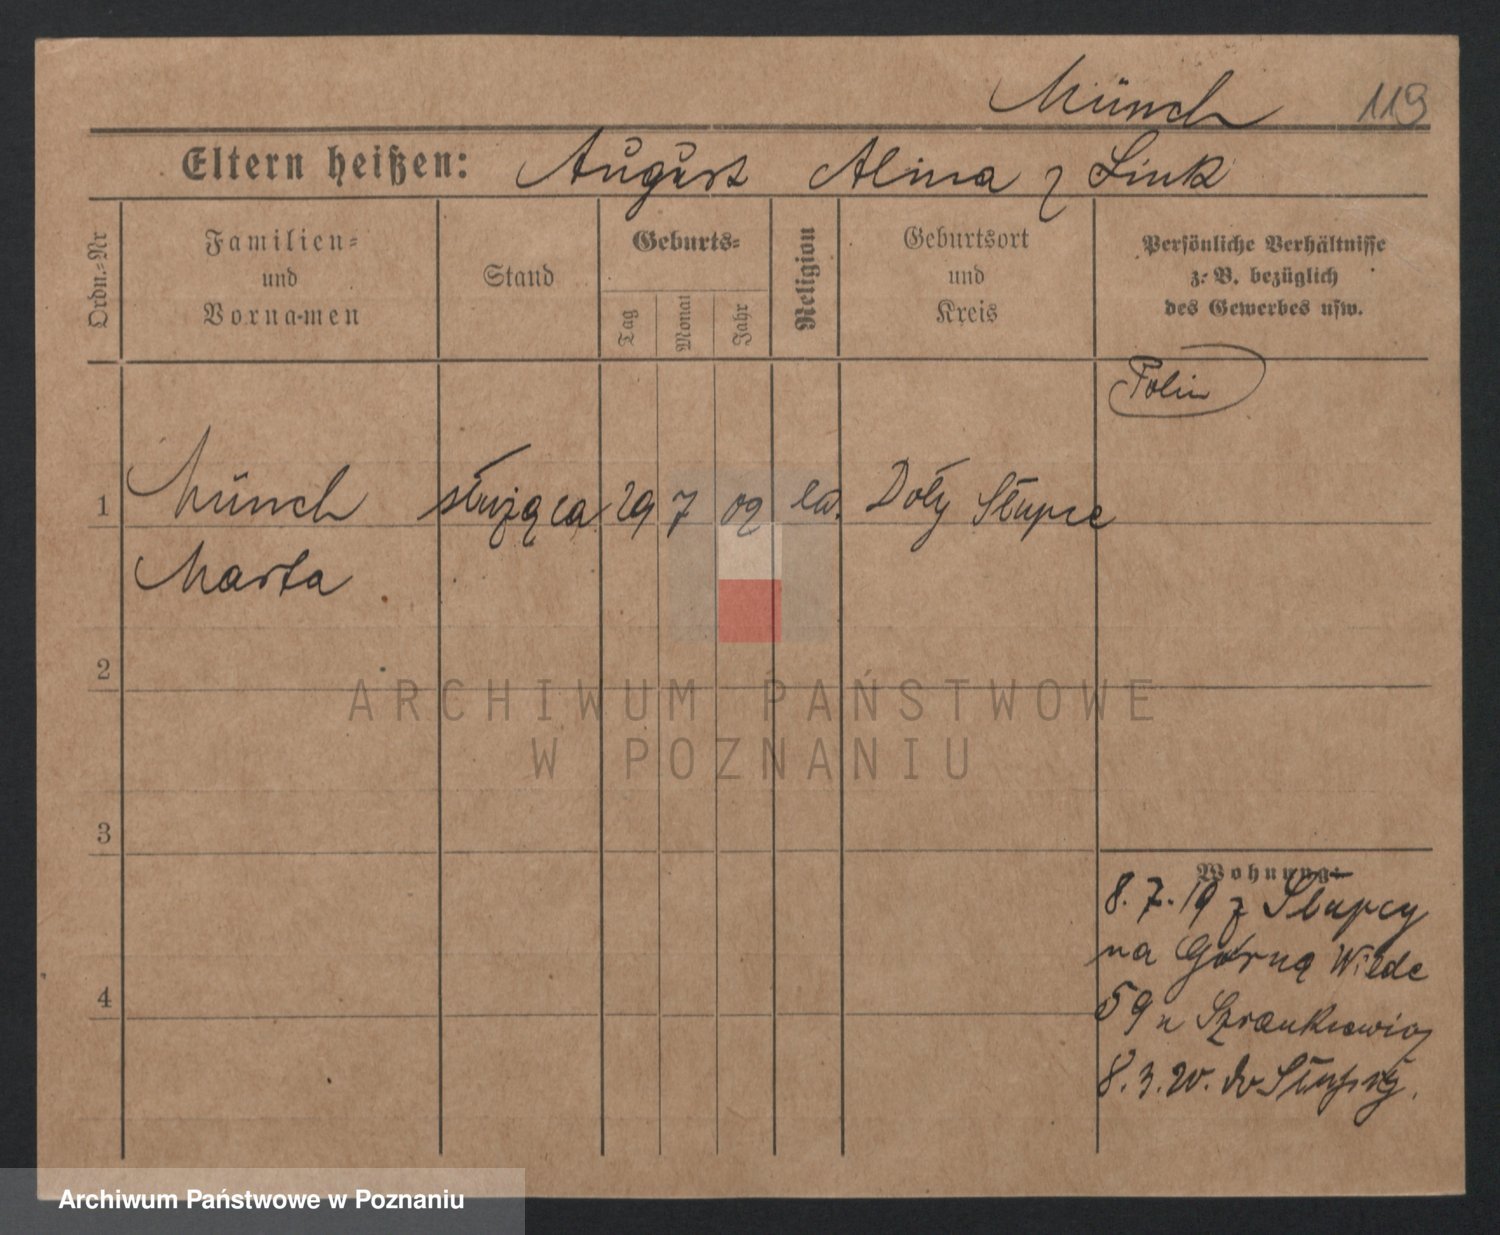 Münch 119
Eltern heißen: August Alina z Link
Ordn.-Nr
Familien-
und
Vornamen
Stand
Geburts-
Tag
Monat
Jahr
Religion
Geburtsort
und
Kreis
Persönliche Verhältnisse
z. B. bezüglich
des Gewerbes usw.
1 Münch służąca 29 7 09 ew. Doły Słupce
Marta
2
3
4
Wohnung:
8.7.19 z Słupcy
na Górną Wilde
59 u
8.3.20. do Słupcy.
ARCHIWUM PAŃSTWOWE
W POZNANIU
Archiwum Państwowe w Poznaniu